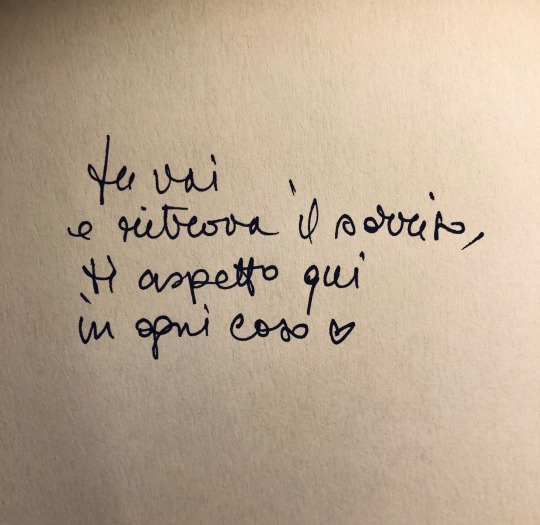 tu vai
e ritrova il sorriso,
ti aspetto qui
in ogni caso ♡